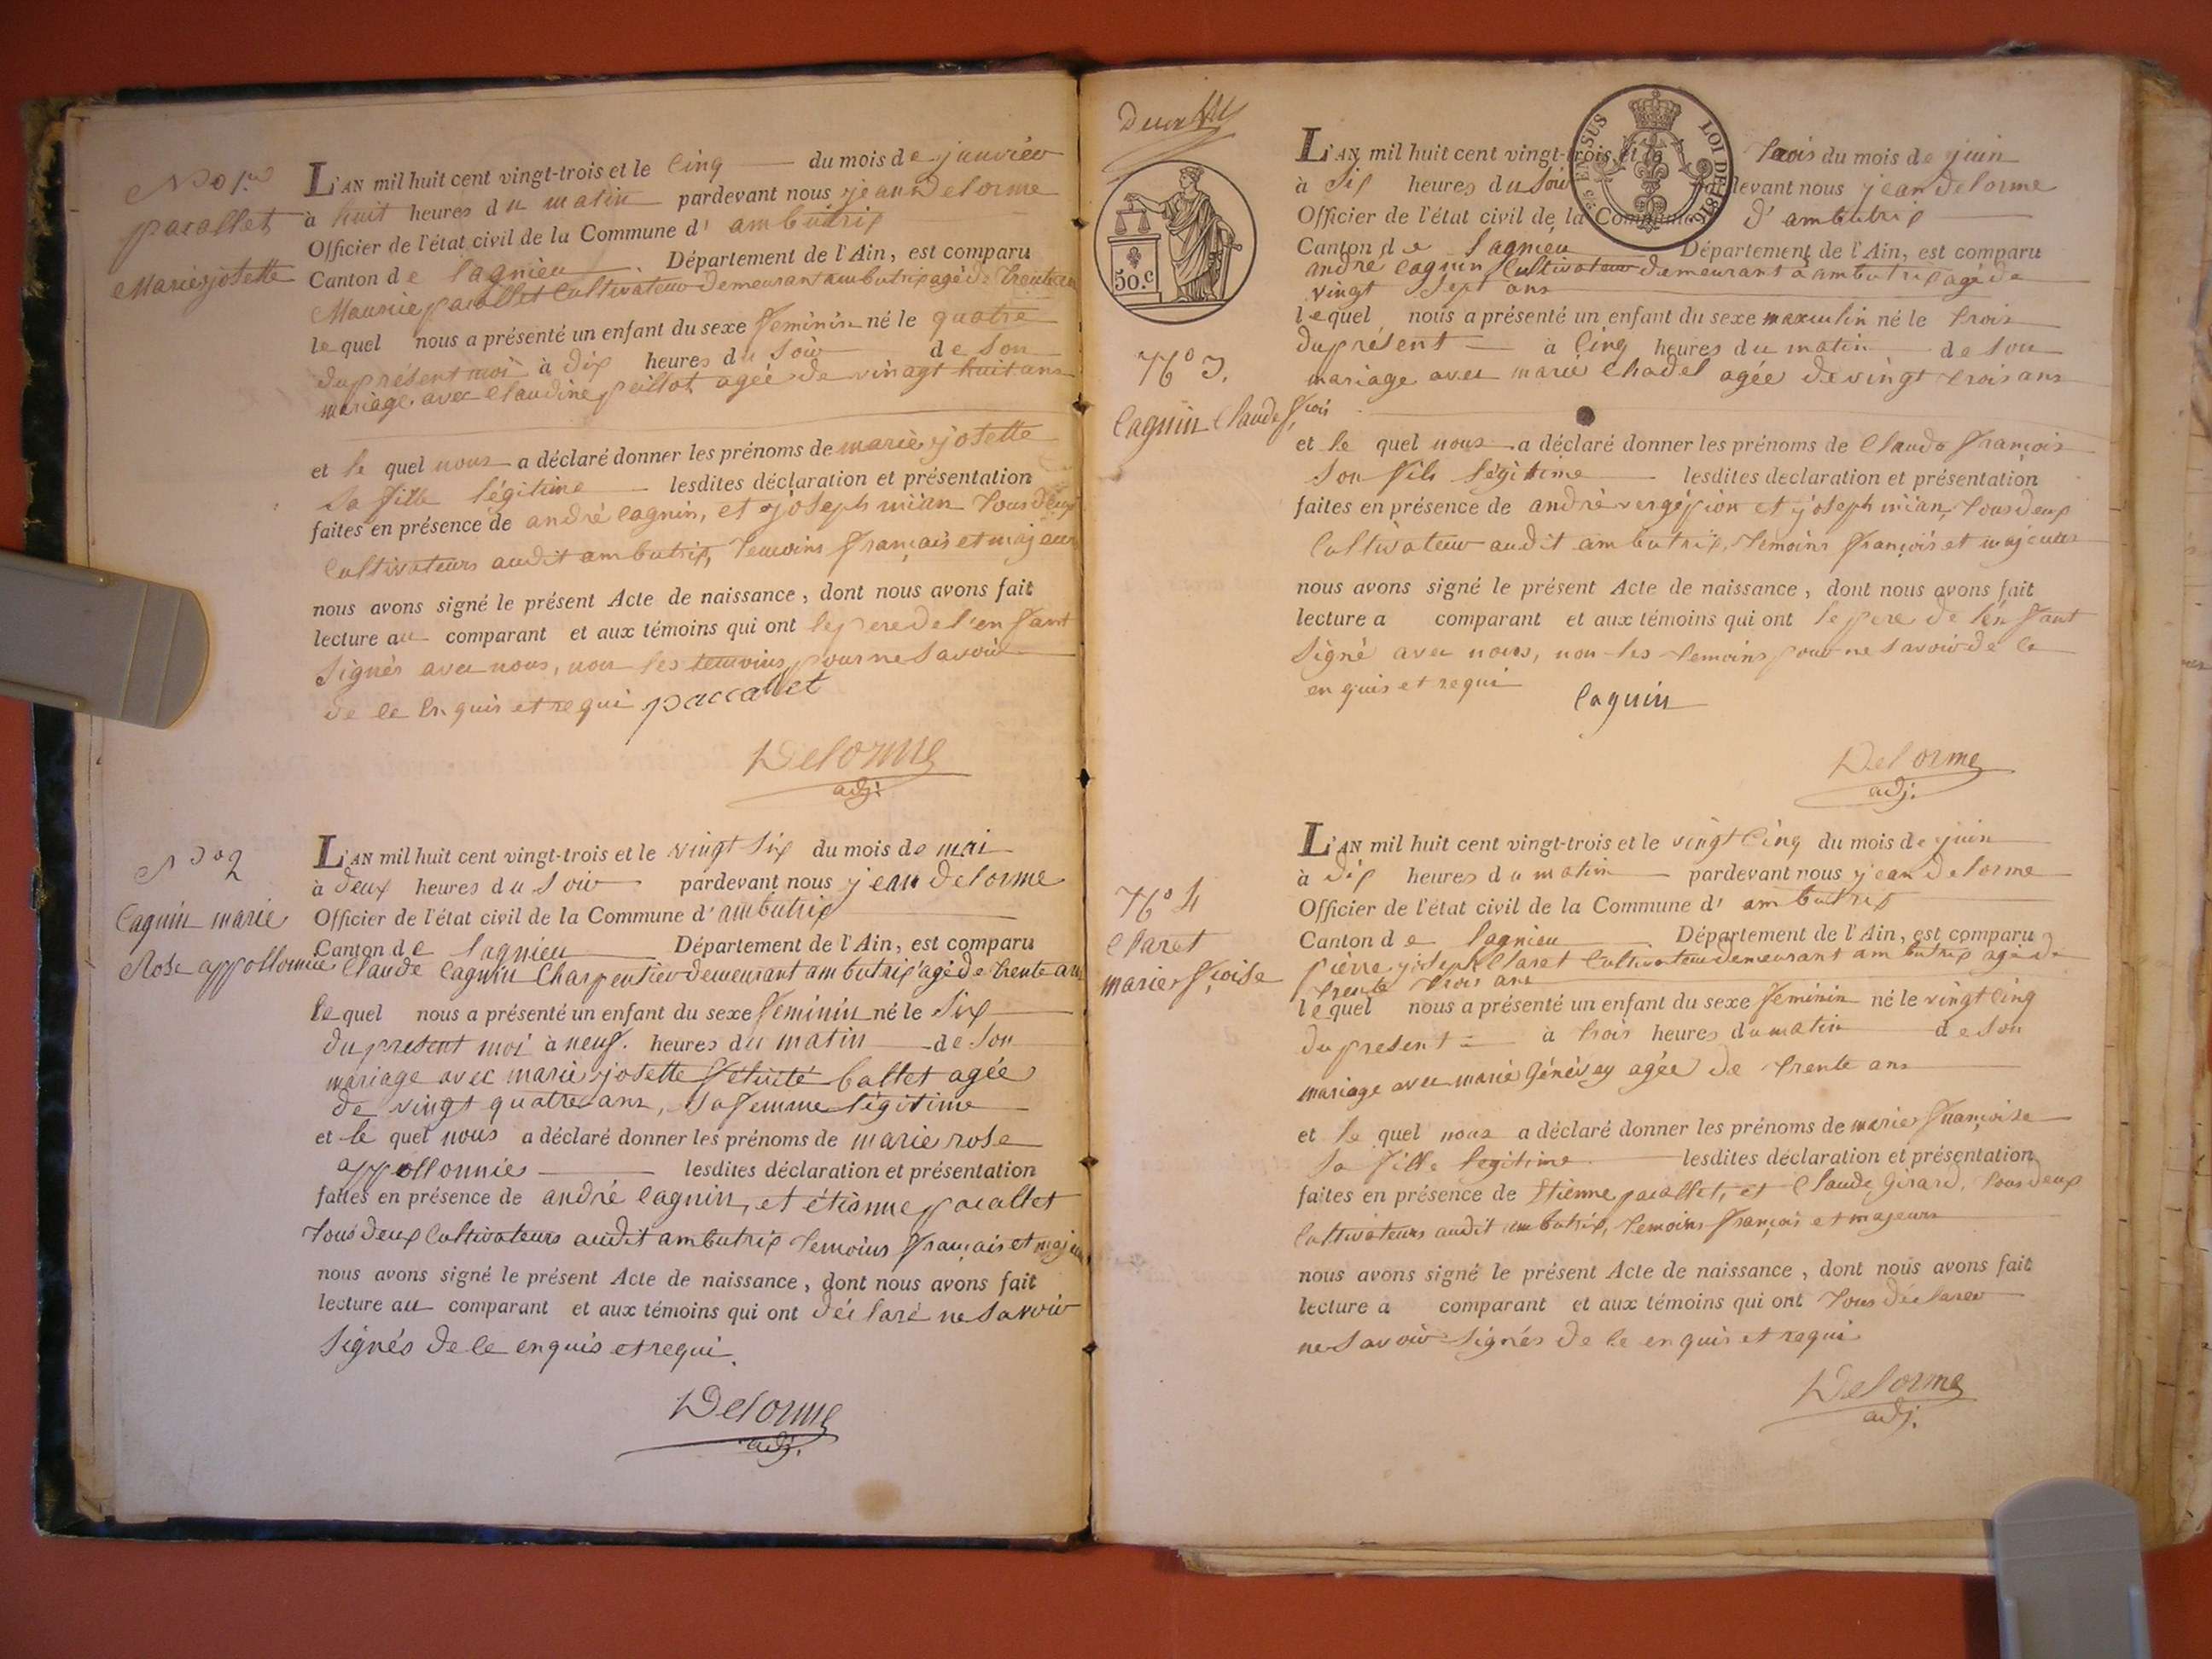 No 1er
pacallet
Marie josette
L'AN mil huit cent vingt-trois et le Cinq du mois de janvier
à huit heures du matin pardevant nous jean Delorme
Officier de l'état civil de la Commune d' ambutrix
Canton de lagnieu Département de l'Ain, est comparu
Maurice pacallet Cultivateur Demeurant ambutrix agé de trente
le quel nous a présenté un enfant du sexe feminin né le quatre
du présent moi à dix heures du soir de son
mariage avec Claudine peillot agée de vingt huit ans
et le quel nous a déclaré donner les prénoms de marie josette
sa fille légitime lesdites déclaration et présentation
faites en présence de andré Cagnin, et joseph miian tous deux
Cultivateurs audit ambutrix, temoins français et majeurs
nous avons signé le présent Acte de naissance, dont nous avons fait
lecture au comparant et aux témoins qui ont le pere de l'enfant
signés avec nous, non les temoins pour ne savoir
de ce enquis et requi paccallet
Delorme
adj.
No 2
Cagnin marie
Rose appollonnie
L'AN mil huit cent vingt-trois et le vingt six du mois de mai
à deux heures du soir pardevant nous jean Delorme
Officier de l'état civil de la Commune d' ambutrix
Canton de lagnieu Département de l'Ain, est comparu
Claude Cagnin Charpentier demeurant ambutrix agé de trente ans
le quel nous a présenté un enfant du sexe feminin né le six
du present moi à neuf heures du matin de son
mariage avec marie josette felicité ballet agée
de vingt quatre ans, sa femme légitime
et le quel nous a déclaré donner les prénoms de marie rose
appollonnie lesdites déclaration et présentation
faites en présence de andré Cagnin, et étienne pacallet
tous deux Cultivateurs audit ambutrix temoins français et majeurs
nous avons signé le présent Acte de naissance, dont nous avons fait
lecture au comparant et aux témoins qui ont déclaré ne savoir
signés de ce enquis et requi.
Delorme
adj.
Deux
50.c
EN SUS
LOI DE 1816
No 3.
Cagnin Claude fçois
L'AN mil huit cent vingt-trois et le trois du mois de juin
à six heures du soir pardevant nous jean delorme
Officier de l'état civil de la Commune d' ambutrix
Canton de lagnieu Département de l'Ain, est comparu
andré Cagnin Cultivateur demeurant à ambutrix agé de
vingt sept ans
lequel nous a présenté un enfant du sexe masculin né le trois
du présent à Cinq heures du matin de son
mariage avec marie Chadel agée de vingt trois ans
et le quel nous a déclaré donner les prénoms de Claude françois
son fils légitime lesdites declaration et présentation
faites en présence de andré vergésion et joseph miian, tous deux
Cultivateur audit ambutrix, temoins françois et majeurs
nous avons signé le présent Acte de naissance, dont nous avons fait
lecture a comparant et aux témoins qui ont le pere de l'enfant
signé avec nous, non les temoins pour ne savoir de ce
enquis et requi Cagnin
Delorme
adj.
No 4
Claret
marie fçoise
L'AN mil huit cent vingt-trois et le vingt Cinq du mois de juin
à dix heures du matin pardevant nous jean Delorme
Officier de l'état civil de la Commune d' ambutrix
Canton de lagnieu Département de l'Ain, est comparu
pierre joseph Claret Cultivateur demeurant ambutrix agé de
trente trois ans
lequel nous a présenté un enfant du sexe feminin né le vingt Cinq
du present à trois heures du matin de son
mariage avec marie Génévey agée de trente ans
et le quel nous a déclaré donner les prénoms de marie françoise
sa fille legitime lesdites déclaration et présentation
faites en présence de Etienne pacallet, et Claude Girard, tous deux
Cultivateurs audit ambutrix, temoins français et majeurs
nous avons signé le présent Acte de naissance, dont nous avons fait
lecture a comparant et aux témoins qui ont tous déclarer
ne savoir signés de ce enquis et requi
Delorme
adj.